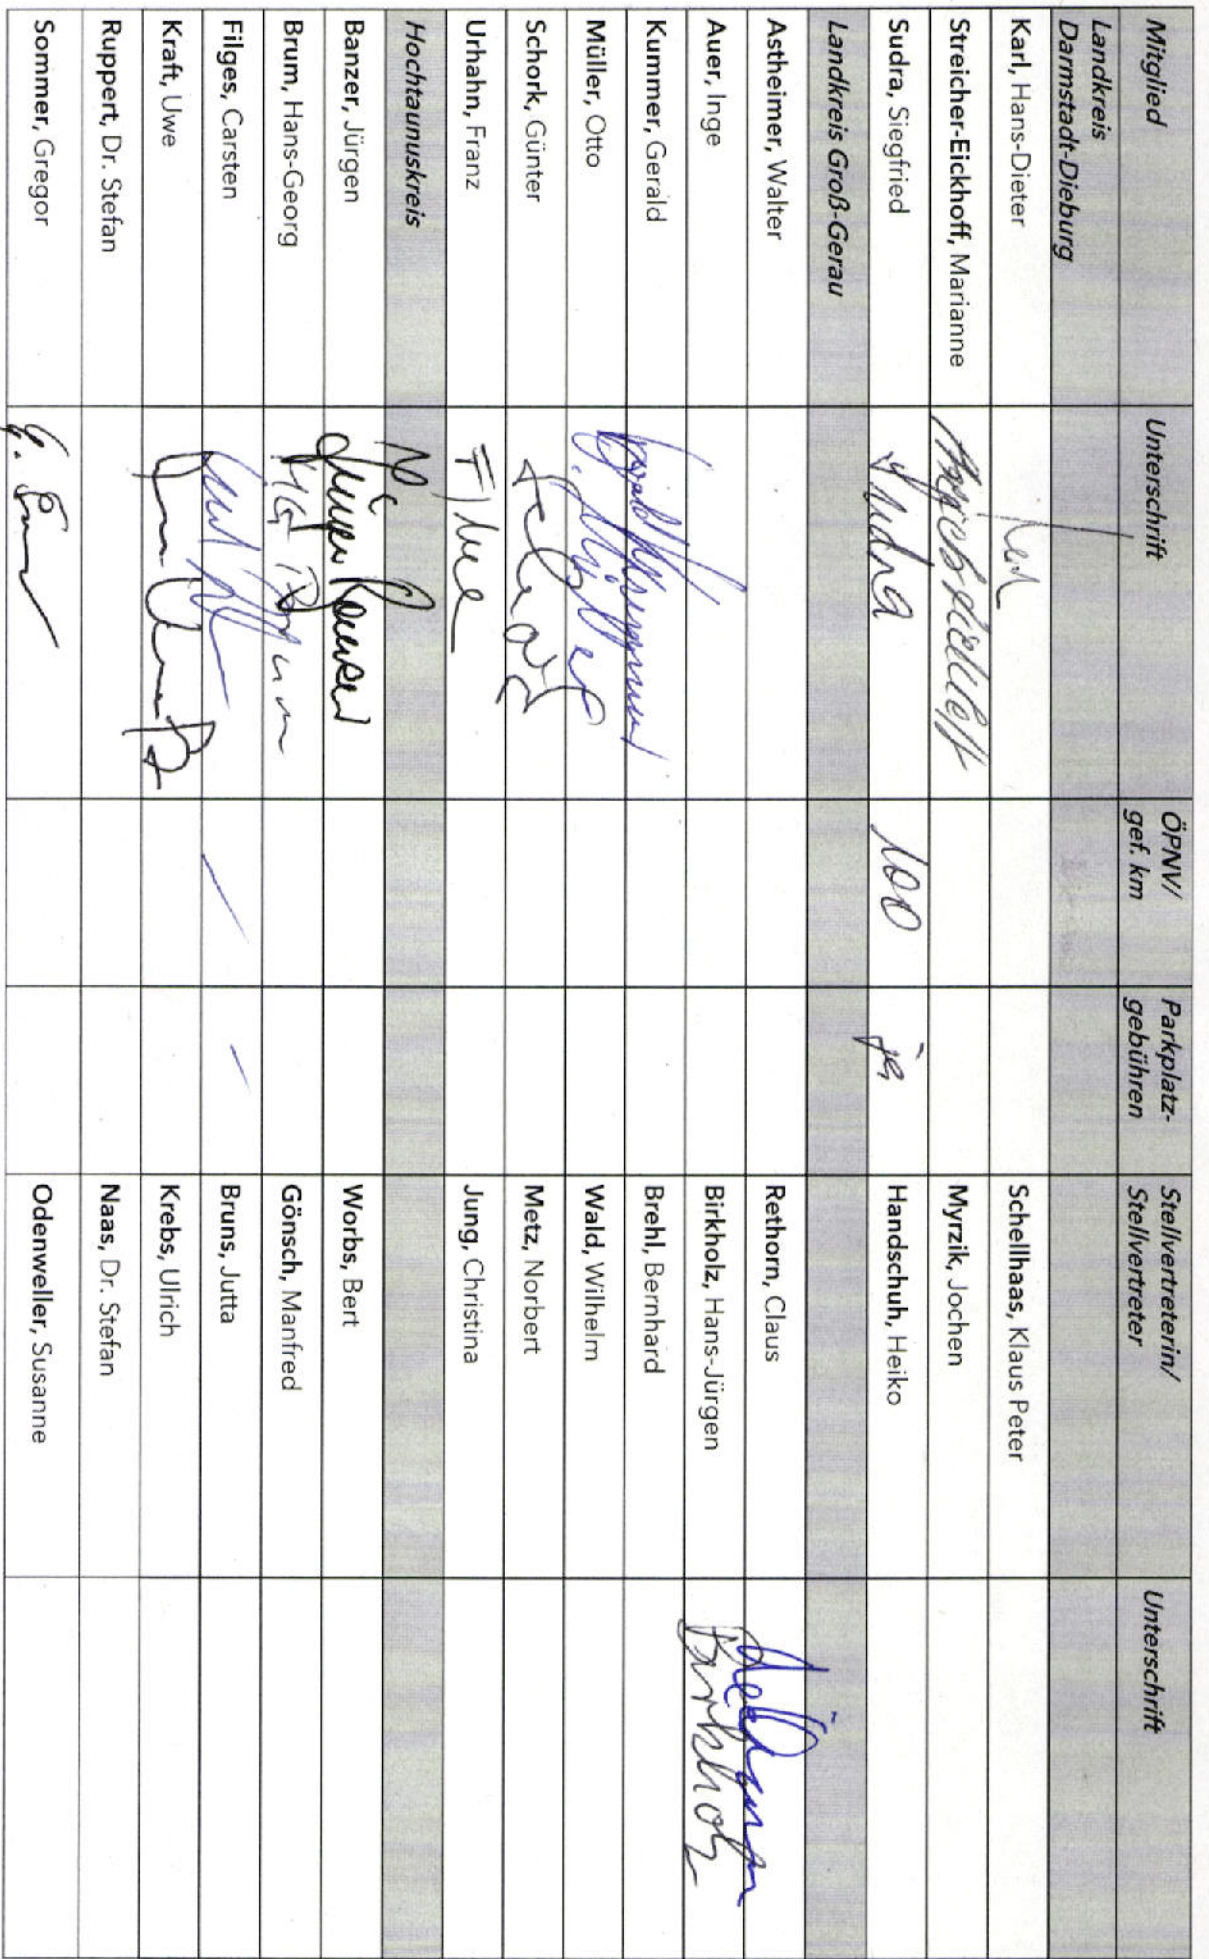 Mitglied Unterschrift ÖPNV/ gef. km Parkplatz- gebühren Stellvertreterin/ Stellvertreter Unterschrift
Landkreis
Darmstadt-Dieburg
Karl, Hans-Dieter Schellhaas, Klaus Peter
Streicher-Eickhoff, Marianne Myrzik, Jochen
Sudra, Siegfried Sudra 100 ja Handschuh, Heiko
Landkreis Groß-Gerau
Astheimer, Walter Rethorn, Claus
Auer, Inge Birkholz, Hans-Jürgen Birkholz
Kummer, Gerald Gerald Kummer Brehl, Bernhard
Müller, Otto O. Müller Wald, Wilhelm
Schork, Günter Metz, Norbert
Urhahn, Franz Jung, Christina
Hochtaunuskreis
Banzer, Jürgen Jürgen Banzer Worbs, Bert
Brum, Hans-Georg HG Brum Gönsch, Manfred
Filges, Carsten Bruns, Jutta
Kraft, Uwe Krebs, Ulrich
Ruppert, Dr. Stefan Naas, Dr. Stefan
Sommer, Gregor Odenweller, Susanne